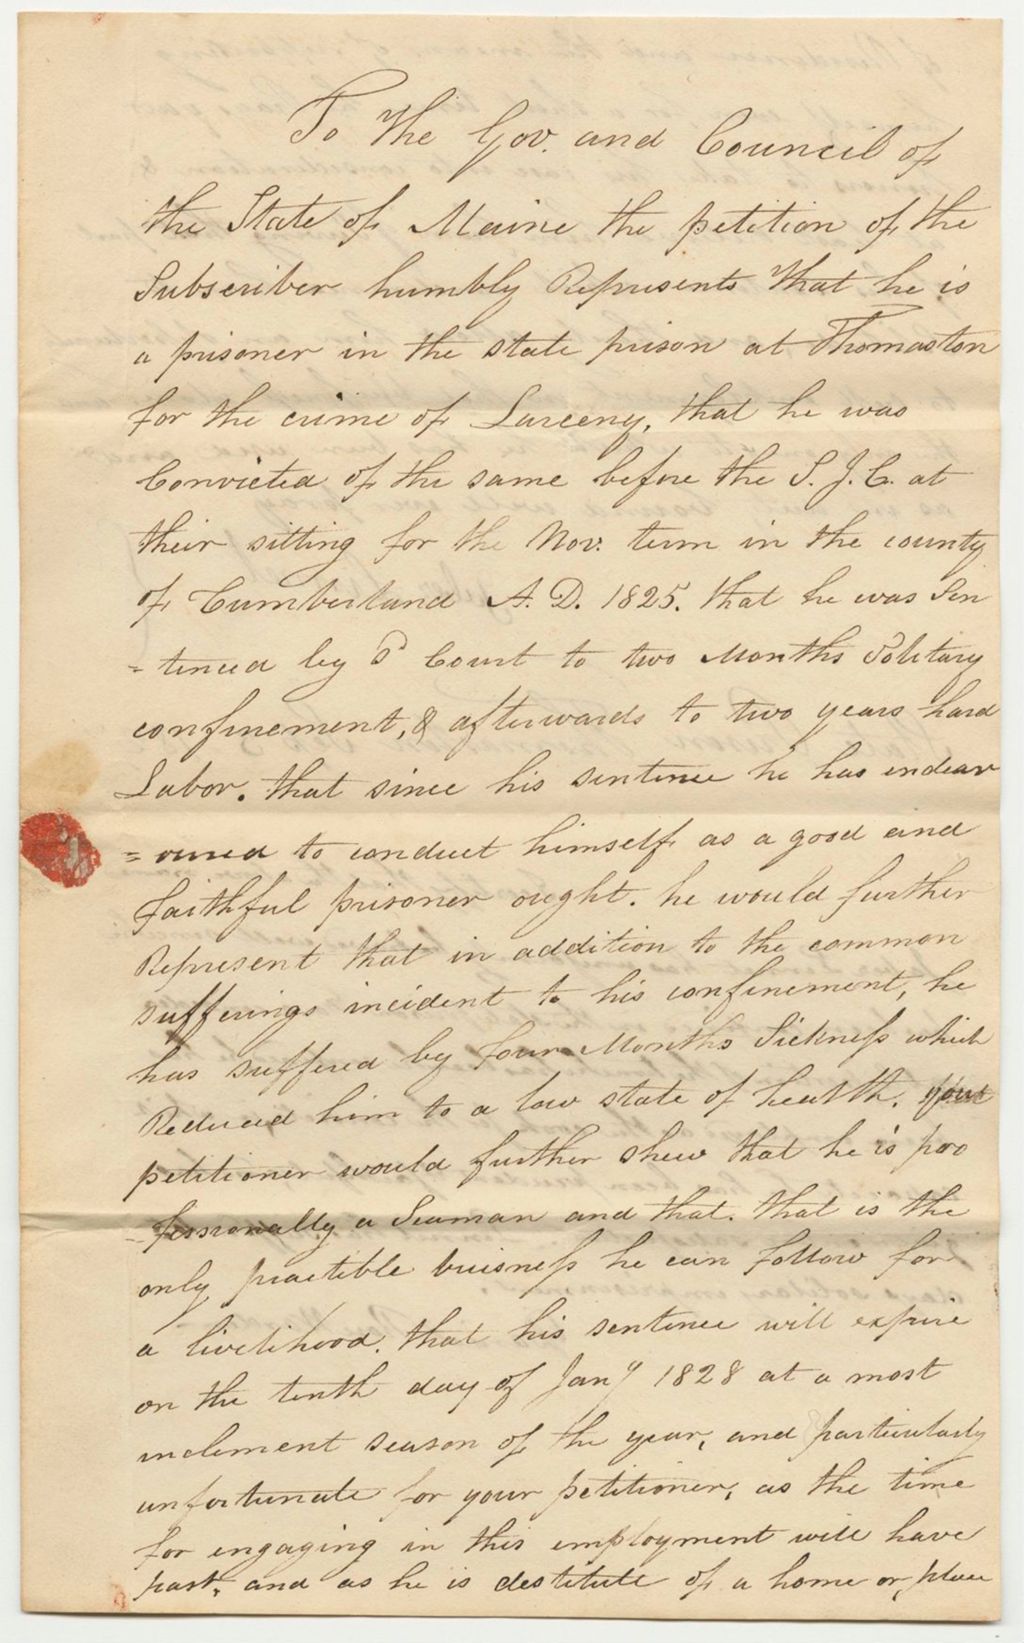 To the Gov. and Council of
the State of Maine the petition of the
Subscriber humbly Represents that he is
a prisoner in the state prison at Thomaston
for the crime of Larceny, that he was
Convicted of the same before the S. J. C. at
their sitting for the Nov. term in the county
of Cumberland A. D. 1825. that he was Sen
=tenced by sd Court to two Months Solitary
confinement, & afterwards to two years hard
Labor. that since his sentence he has endeav
=oured to conduct himself as a good and
faithful prisoner ought. he would further
Represent that in addition to the common
sufferings incident to his confinement, he
has suffered by four Months Sickness which
Reduced him to a low state of health. your
petitioner would further shew that he is pro
=fessionally a Seaman and that. that is the
only practible buisness he can follow for
a livelihood. that his sentence will expire
on the tenth day of Jany 1828 at a most
inclement season of the year, and particularly
unfortunate for your petitioner, as the time
for engaging in this employment will have
past, and as he is destitute of a home or place